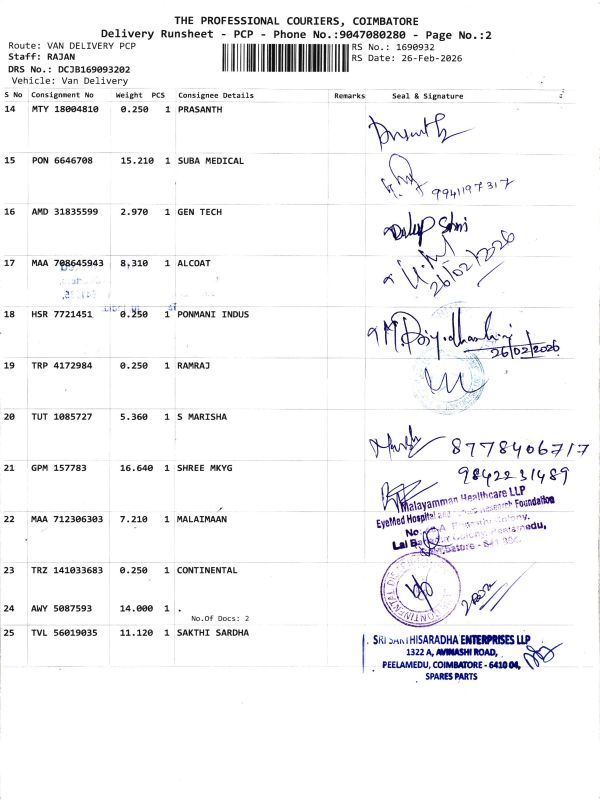 THE PROFESSIONAL COURIERS, COIMBATORE
Delivery Runsheet - PCP - Phone No.:9047080280 - Page No.:2
Route: VAN DELIVERY PCP
RS No.: 1690932
Staff: RAJAN
RS Date: 26-Feb-2026
DRS No.: DCJB169093202
Vehicle: Van Delivery
S No Consignment No Weight PCS Consignee Details Remarks Seal & Signature
14 MTY 18004810 0.250 1 PRASANTH
15 PON 6646708 15.210 1 SUBA MEDICAL
9941197317
16 AMD 31835599 2.970 1 GEN TECH
17 MAA 708645943 8.310 1 ALCOAT
26/02/2026
18 HSR 7721451 0.250 1 PONMANI INDUS
26/02/2026
19 TRP 4172984 0.250 1 RAMRAJ
20 TUT 1085727 5.360 1 S MARISHA
8778406717
21 GPM 157783 16.640 1 SHREE MKYG
9842231489
Malayamman Healthcare LLP
EyeMed Hospital and Research Foundation
22 MAA 712306303 7.210 1 MALAIMAAN
23 TRZ 141033683 0.250 1 CONTINENTAL
24 AWY 5087593 14.000 1 .
No.Of Docs: 2
25 TVL 56019035 11.120 1 SAKTHI SARDHA
SRI SAKTHISARADHA ENTERPRISES LLP
1322 A, AVINASHI ROAD,
PEELAMEDU, COIMBATORE - 6410 04,
SPARES PARTS